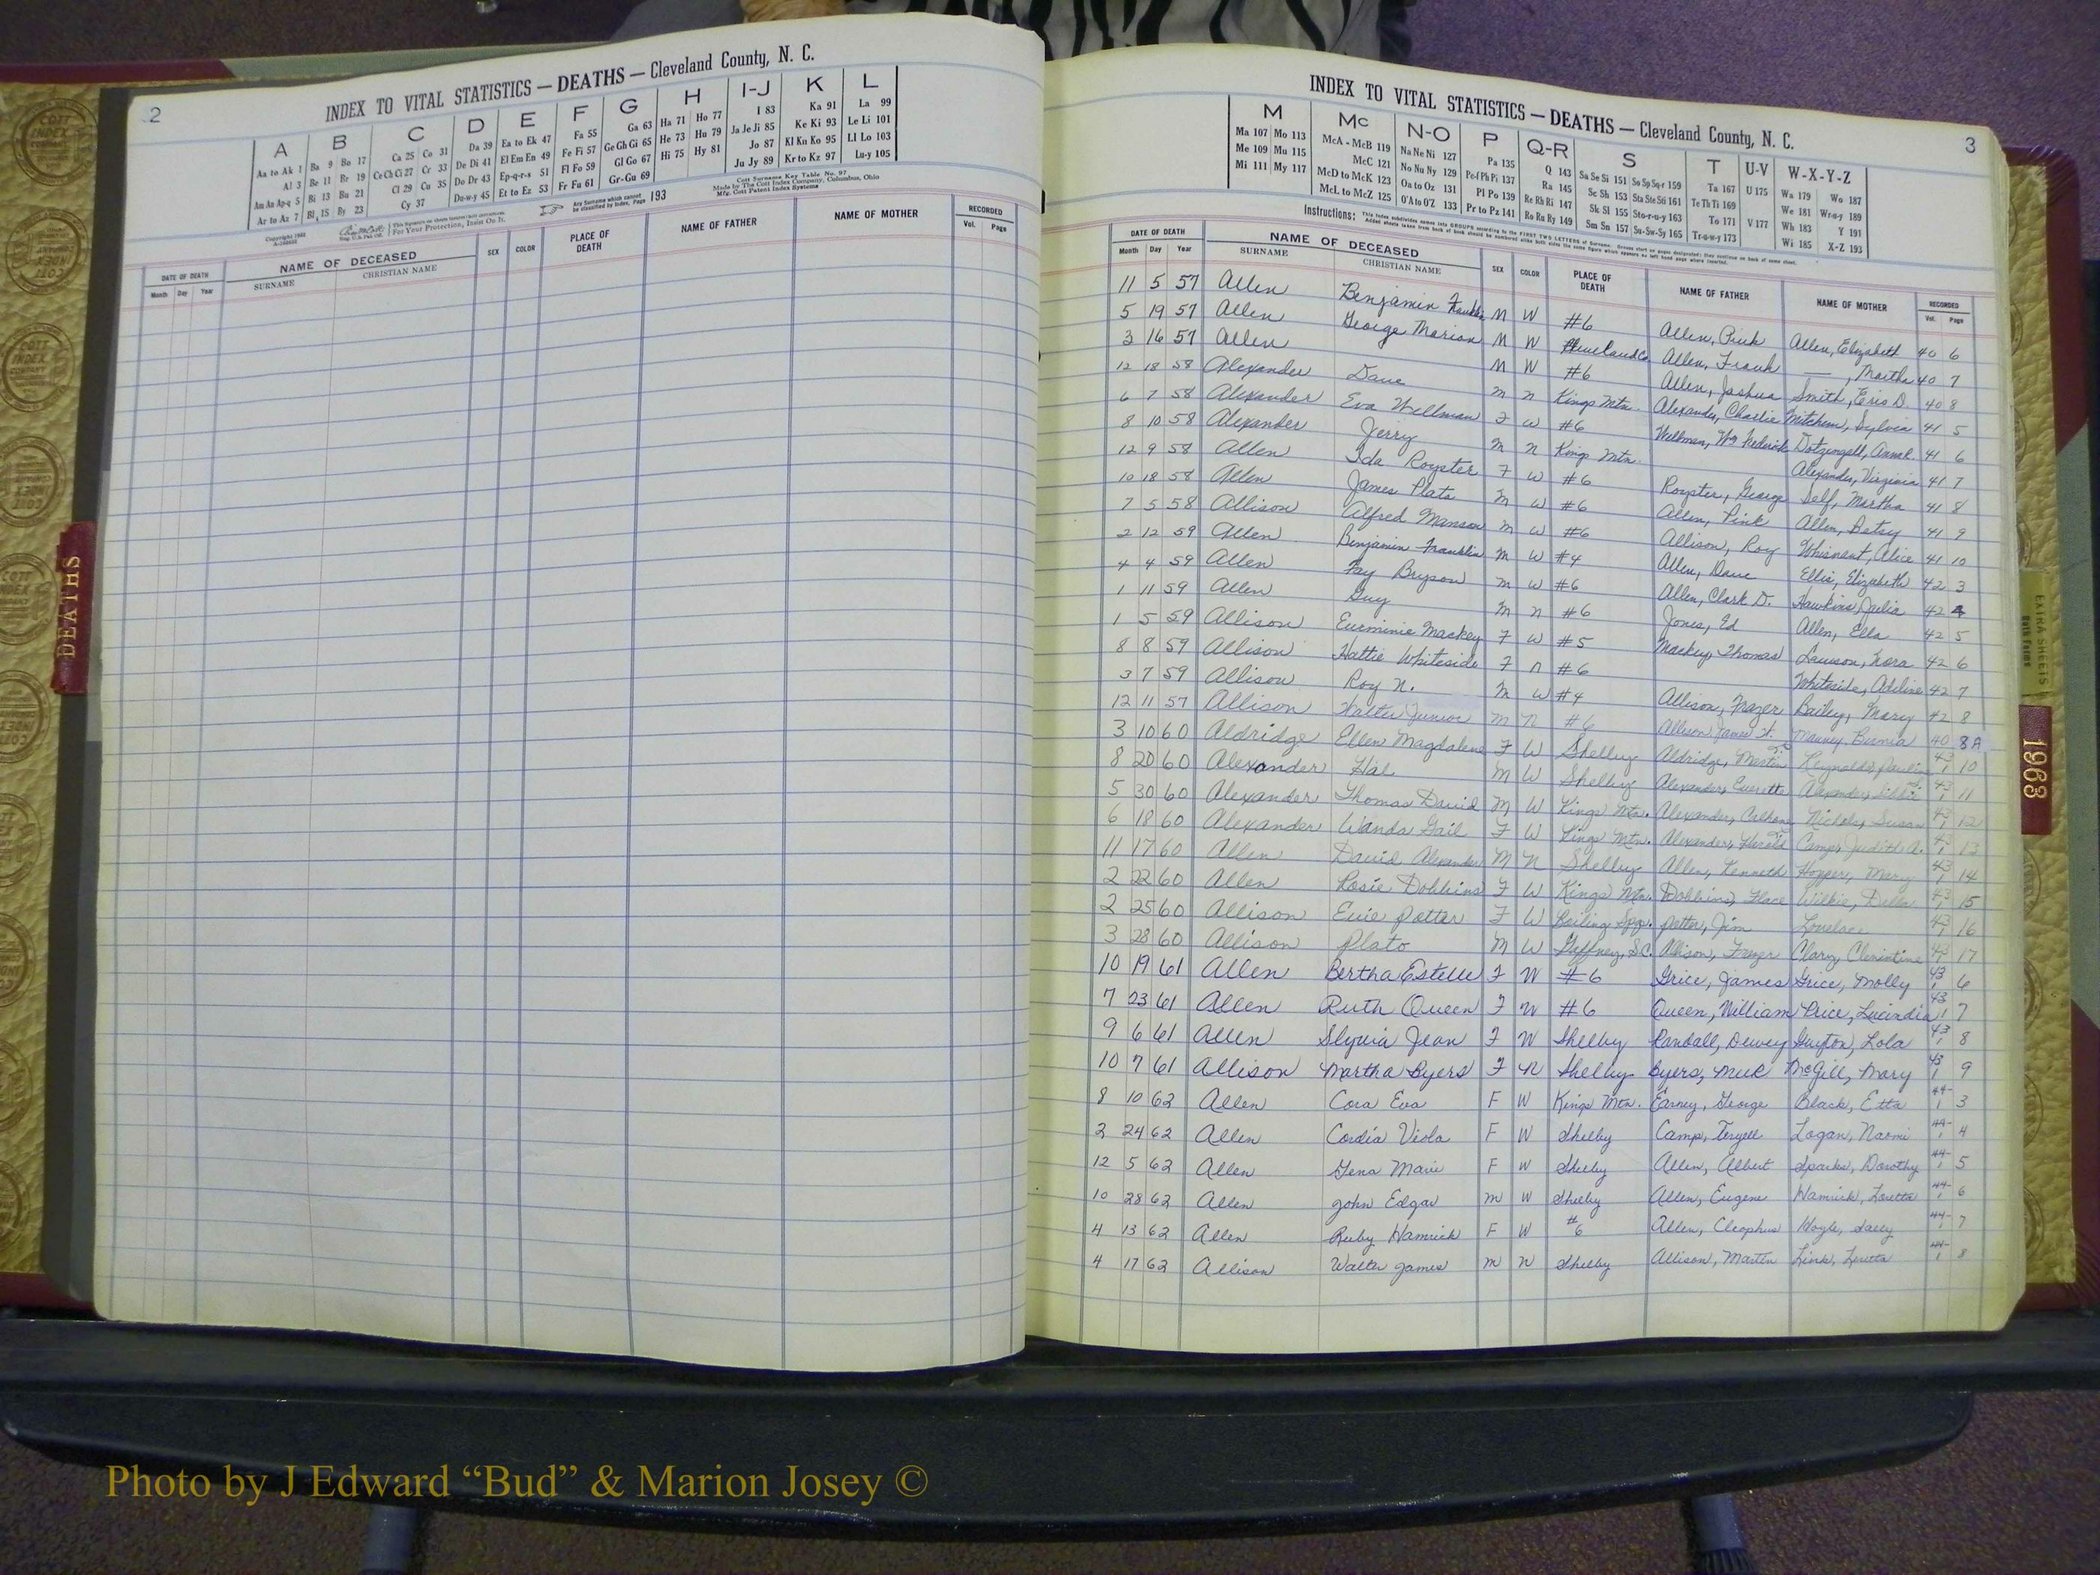 2
INDEX TO VITAL STATISTICS — DEATHS — Cleveland County, N. C.
A B C D E F G H I-J K L
Aa to Ak 1 Ba 9 Bo 17 Ca 25 Co 31 Da 39 Ea to Ek 47 Fa 55 Ga 63 Ha 71 Ho 77 I 83 Ka 91 La 99
Al 3 Be 11 Br 19 Ce Ch Ci 27 Cr 33 De Di 41 El Em En 49 Fe Fi 57 Ge Gh Gi 65 He 73 Hu 79 Ja Je Ji 85 Ke Ki 93 Le Li 101
Am An Ap-q 5 Bi 13 Bu 21 Cl 29 Cu 35 Do Dr 43 Ep-q-r-s 51 Fl Fo 59 Gl Go 67 Hi 75 Hy 81 Jo 87 Kl Kn Ko 95 Ll Lo 103
Ar to Az 7 Bl 15 By 23 Cy 37 Du-w-y 45 Et to Ez 53 Fr Fu 61 Gr-Gu 69 Ju Jy 89 Kr to Kz 97 Lu-y 105
Any Surname which cannot be classified by Index, Page 193
Cott Surname Key Table No. 97
Made by The Cott Index Company, Columbus, Ohio
Mfg. Cott Patent Index Systems
For Your Protection, Insist On It.
DATE OF DEATH NAME OF DECEASED SEX COLOR PLACE OF DEATH NAME OF FATHER NAME OF MOTHER RECORDED
Month Day Year SURNAME CHRISTIAN NAME Vol. Page
DEATHS
3
INDEX TO VITAL STATISTICS — DEATHS — Cleveland County, N. C.
M Mc N-O P Q-R S T U-V W-X-Y-Z
Ma 107 Mo 113 McA - McB 119 Na Ne Ni 127 Pa 135 Q 143 Sa Se Si 151 So Sp Sq-r 159 Ta 167 U 175 Wa 179 Wo 187
Me 109 Mu 115 McC 121 No Nu Ny 129 Pe-f Ph Pi 137 Ra 145 Sc Sh 153 Sta Ste Sti 161 Te Th Ti 169 We 181 Wr-u-y 189
Mi 111 My 117 McD to McK 123 Oa to Oz 131 Pl Po 139 Re Rh Ri 147 Sk Sl 155 Sto-r-u-y 163 To 171 V 177 Wh 183 Y 191
McL to McZ 125 O'A to O'Z 133 Pr to Pz 141 Ro Ru Ry 149 Sm Sn 157 Su-Sw-Sy 165 Tr-u-w-y 173 Wi 185 X-Z 193
DATE OF DEATH NAME OF DECEASED SEX COLOR PLACE OF DEATH NAME OF FATHER NAME OF MOTHER RECORDED
Month Day Year SURNAME CHRISTIAN NAME Vol. Page
11 5 57 Allen Benjamin Franklin M W #6 Allen, Pink Allen, Elizabeth 40 6
5 19 57 Allen George Marion M W Cleveland Co. Allen, Frank — , Martha 40 7
3 16 57 Allen M W #6 Allen, Joshua Smith, Eris D. 40 8
12 18 58 Alexander Dave M N Kings Mtn. Alexander, Charlie Mitchem, Sylvia 41 5
6 7 58 Alexander Eva Wellman F W #6 Wellman, Wm Frederick 41 6
8 10 58 Alexander Jerry M N Kings Mtn. Alexander, Virginia 41 7
12 9 58 Allen Ida Royster F W #6 Royster, George Self, Martha 41 8
10 18 58 Allen James Plato M W #6 Allen, Pink Allen, Betsy 41 9
7 5 58 Allison Alfred Manson M W #6 Allison, Roy Whisnant, Alice 41 10
2 12 59 Allen Benjamin Franklin M W #4 Allen, Dave Ellis, Elizabeth 42 3
4 4 59 Allen Fay Bryson M W #6 Allen, Clark D. Hawkins, Julia 42 4
1 11 59 Allen Guy M N #6 Jones, Ed Allen, Ella 42 5
1 5 59 Allison Eurminie Mackey F W #5 Mackey, Thomas Lawson, Nora 42 6
8 8 59 Allison Hattie Whiteside F N #6 Whiteside, Adeline 42 7
3 7 59 Allison Roy N. M W #4 Allison, Frazer Bailey, Mary 42 8
12 11 57 Allison Walter Junior M N #6 Allison, James W. Mauney, Burnia 40 8A
3 10 60 Aldridge Ellen Magdalene F W Shelby Aldridge, Martin Reynolds, Pauline 43 10
8 20 60 Alexander Hal M W Shelby Alexander, Everette Alexander, Libbie 43 11
5 30 60 Alexander Thomas David M W Kings Mtn. Alexander, Calhoun Nichols, Susan 43 12
6 18 60 Alexander Wanda Gail F W Kings Mtn. Alexander, Harold Camp, Judith A. 43 13
11 17 60 Allen David Alexander M N Shelby Allen, Kenneth Hopper, Mary 43 14
2 22 60 Allen Rosie Dobbins F W Kings Mtn. Dobbins, Wilkie, Della 43 15
2 25 60 Allison Evie Potter F W Boiling Spgs. Potter, Jim Lovelace 43 16
3 28 60 Allison Plato M W Gaffney, S.C. Allison, Frazer Clary, Clementine 43 17
10 19 61 Allen Bertha Estelle F W #6 Grice, James Grice, Molly 43 6
7 23 61 Allen Ruth Queen F W #6 Queen, William Price, Lucindia 43 7
9 6 61 Allen Slyvia Jean F W Shelby Randall, Dewey Guyton, Lola 43 8
10 7 61 Allison Martha Byers F N Shelby Byers, Mick McGill, Mary 43 9
8 10 62 Allen Cora Eva F W Kings Mtn. Earney, George Black, Etta 44 3
2 24 62 Allen Cordia Viola F W Shelby Camp, Teryell Logan, Naomi 44 4
12 5 62 Allen Gena Marie F W Shelby Allen, Albert Sparks, Dorothy 44 5
10 28 62 Allen John Edgar M W Shelby Allen, Eugene Hamrick, Loretta 44 6
4 13 62 Allen Ruby Hamrick F W #6 Allen, Cleophus Hoyle, Sally 44 7
4 17 62 Allison Walter James M N Shelby Allison, Martin Link, Loretta 44 8
EXTRA SHEETS
1963
Photo by J Edward “Bud” & Marion Josey ©